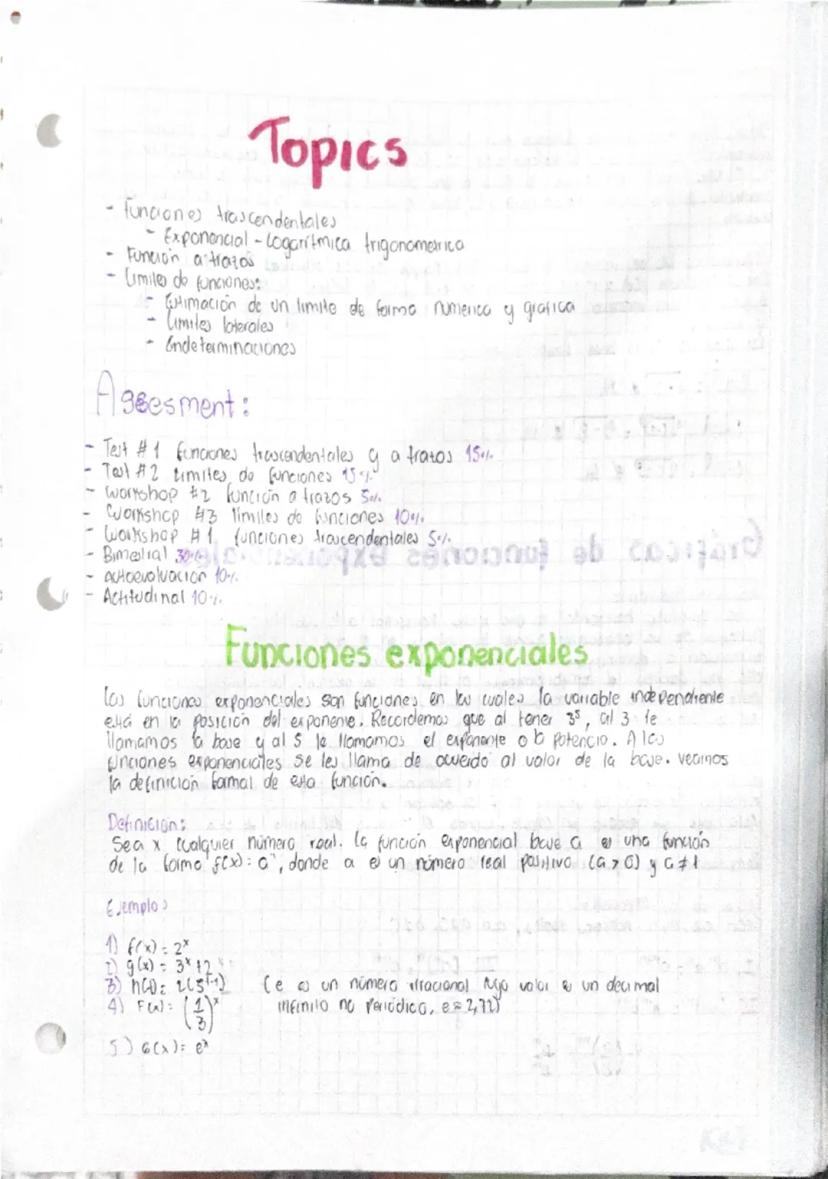 Topics
- Funciones trascendentales
- Exponencial - Logarítmica trigonometrica
- Función a trazos
- Limites de funciones:
- Estimación de un limite de forma numerica y grafica
- Limites laterales
- Indeterminaciones
Assesment:
- Test #1 funciones trascendentales y a trazos 15%
- Test #2 Limites de funciones 15%
- Workshop #2 función a trazos 5%
- Workshop #3 limites de funciones 10%
- Workshop #1 funciones trascendentales 5%
- Bimestral 30%
- autoevaluación 10%
- Actitudinal 10%
Funciones exponenciales
Las funciones exponenciales son funciones en las cuales la variable independiente
está en la posición del exponente. Recordemos que al tener 3⁵, al 3 le
llamamos la base y al 5 le llamamos el exponente o la potencia. A las
funciones exponenciales se les llama de acuerdo al valor de la base. veamos
la definición formal de esta función.
Definición:
Sea x cualquier número real. La función exponencial base a es una función
de la forma f(x) = aˣ, donde a es un número real positivo (a > 0) y a ≠ 1
Ejemplos
1) f(x) = 2ˣ
2) g(x) = 3ˣ + 2
3) h(t) = 2(5ᵗ⁻¹) (e es un número irracional cuyo valor es un decimal
4) F(x) = (1/3)ˣ infinito no periódico, e ≈ 2,72)
5) G(x) = eˣ